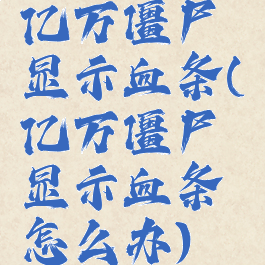 亿万僵尸
显示血条(
亿万僵尸
显示血条
怎么办)